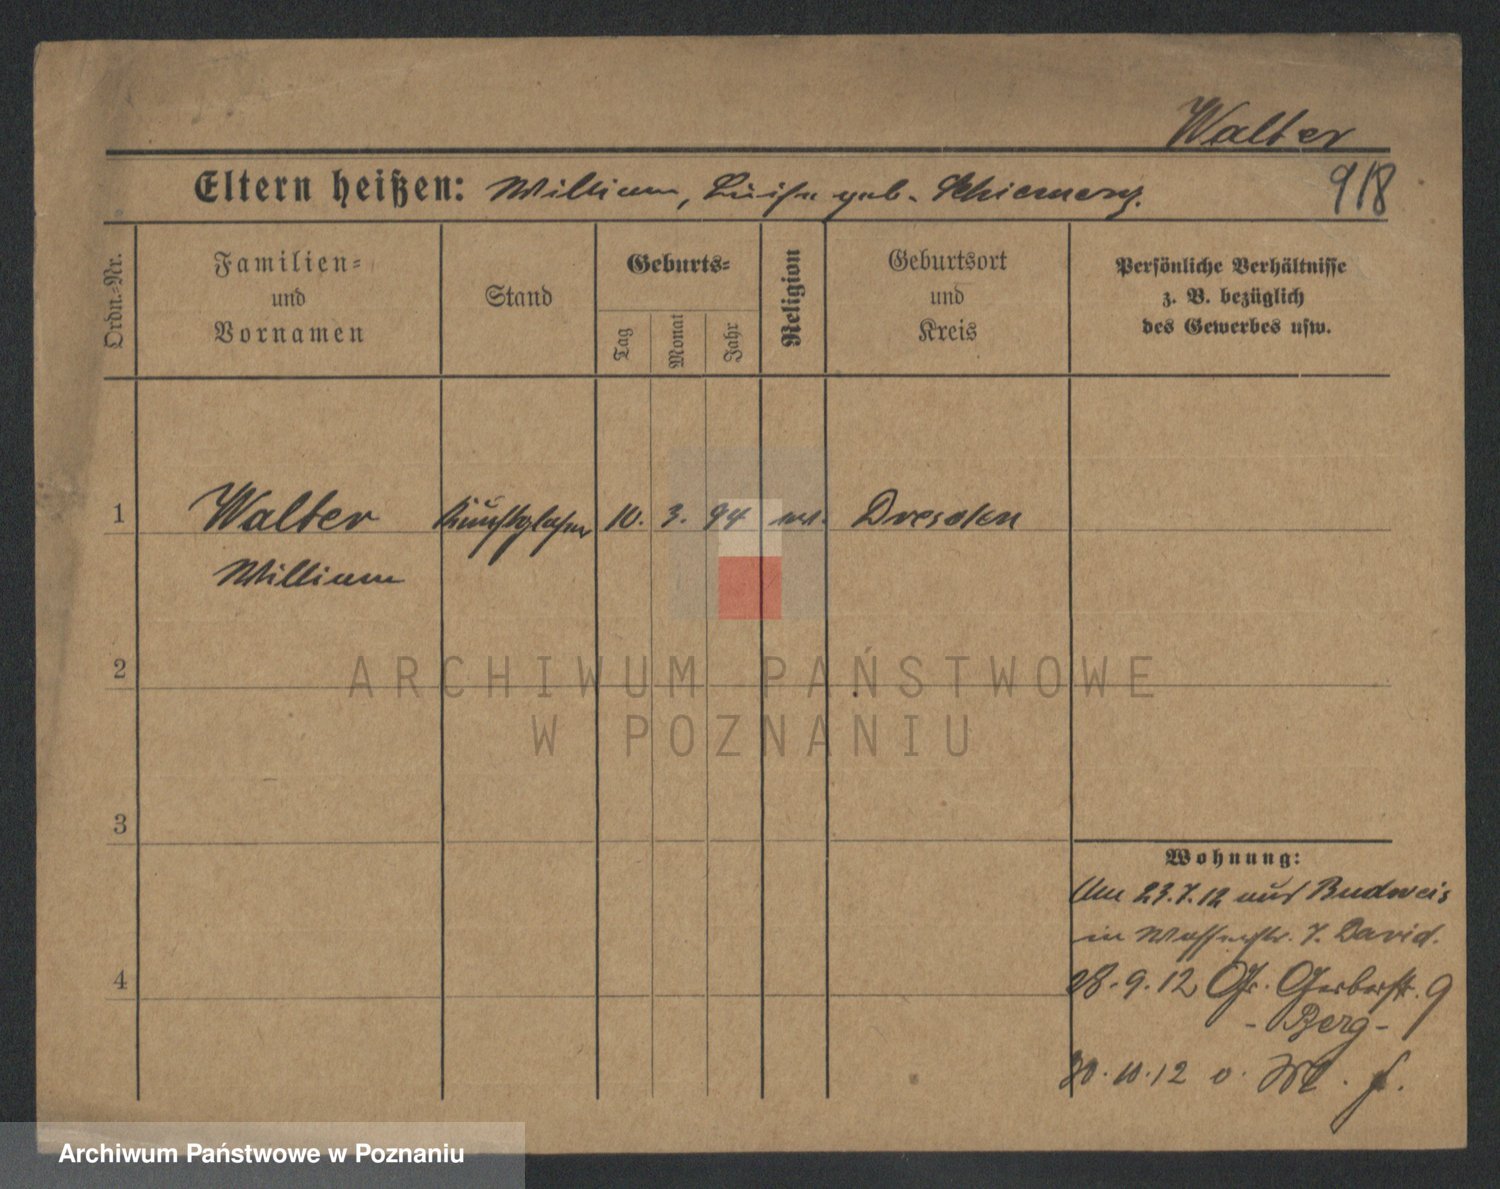 Walter
918
Eltern heißen: William, Luise geb. Schiemenz.
Ordn.=Nr.
Familien=
und
Vornamen
Stand
Geburts=
Tag
Monat
Jahr
Religion
Geburtsort
und
Kreis
Persönliche Verhältnisse
z. B. bezüglich
des Gewerbes usw.
1 Walter Kunstglaser 10. 3. 94 Dresden
William
2
ARCHIWUM PAŃSTWOWE
W POZNANIU
3
Wohnung:
23.7.12 aus Budweis
in 7. David.
4
28.9.12 Gr. Gerberstr. 9
- Berg -
30.10.12
Archiwum Państwowe w Poznaniu